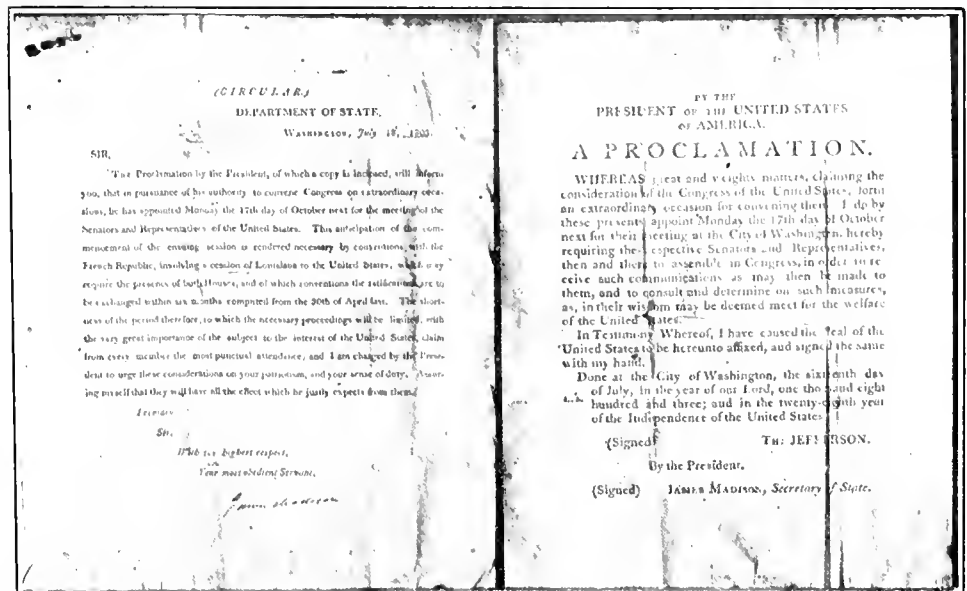 (CIRCULAR.)
DEPARTMENT OF STATE,
WASHINGTON, July 18, 1803.
SIR,
THE Proclamation by the President, of which a copy is inclosed, will inform
you, that in pursuance of his authority to convene Congress on extraordinary occa-
sions, he has appointed Monday the 17th day of October next for the meeting of the
Senators and Representatives of the United States. This anticipation of the com-
mencement of the ensuing session is rendered necessary by conventions with the
French Republic, involving a cession of Louisiana to the United States, which may
require the presence of both Houses, and of which conventions the ratifications are to
be exchanged within six months computed from the 30th of April last. The short-
ness of the period therefore, to which the necessary proceedings will be limited, with
the very great importance of the subject to the interest of the United States, claim
from every member the most punctual attendance, and I am charged by the Presi-
dent to urge these considerations on your patriotism, and your sense of duty. Assur-
ing myself that they will have all the effect which he justly expects from them,
I remain
Sir,
With the highest respect,
Your most obedient Servant,
James Madison
BY THE
PRESIDENT OF THE UNITED STATES
OF AMERICA.
A PROCLAMATION.
WHEREAS great and weighty matters, claiming the
consideration of the Congress of the United States, form
an extraordinary occasion for convening them, I do by
these presents appoint Monday the 17th day of October
next for their meeting at the City of Washington, hereby
requiring the respective Senators and Representatives,
then and there to assemble in Congress, in order to re-
ceive such communications as may then be made to
them, and to consult and determine on such measures,
as, in their wisdom may be deemed meet for the welfare
of the United States.
In Testimony Whereof, I have caused the Seal of the
United States to be hereunto affixed, and signed the same
with my hand.
Done at the City of Washington, the sixteenth day
of July, in the year of our Lord, one thousand eight
L.S. hundred and three; and in the twenty-eighth year
of the Independence of the United States.
(Signed) TH: JEFFERSON.
By the President.
(Signed) JAMES MADISON, Secretary of State.